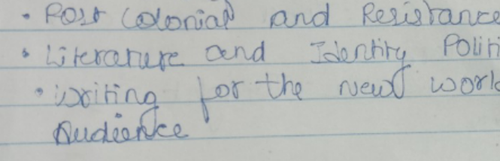 • Post Colonial and Resistance
• Literature and Identity Politi
• writing for the new world
Audience